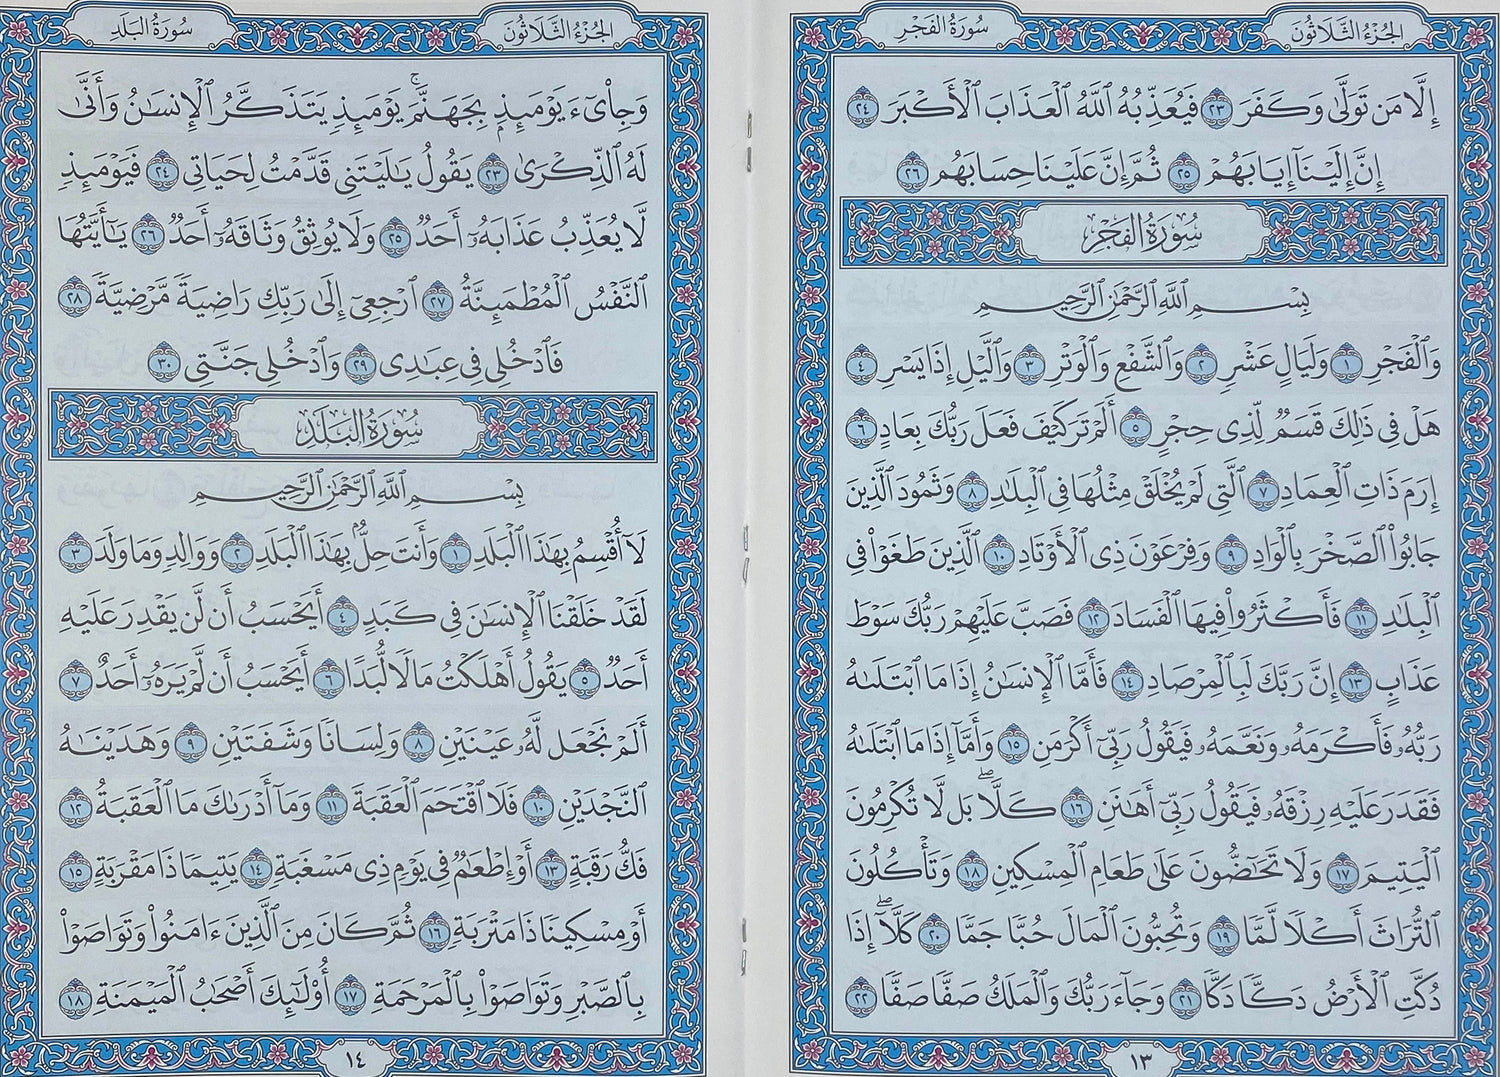 الجُزْءُ الثَّلَاثُونَ
سُورَةُ الفَجْرِ
إِلَّا مَن تَوَلَّىٰ وَكَفَرَ ٢٣ فَيُعَذِّبُهُ ٱللَّهُ ٱلْعَذَابَ ٱلْأَكْبَرَ ٢٤
إِنَّ إِلَيْنَآ إِيَابَهُمْ ٢٥ ثُمَّ إِنَّ عَلَيْنَا حِسَابَهُم ٢٦
سُورَةُ الفَجْرِ
بِسْمِ ٱللَّهِ ٱلرَّحْمَٰنِ ٱلرَّحِيمِ
وَٱلْفَجْرِ ١ وَلَيَالٍ عَشْرٍ ٢ وَٱلشَّفْعِ وَٱلْوَتْرِ ٣ وَٱلَّيْلِ إِذَا يَسْرِ ٤
هَلْ فِي ذَٰلِكَ قَسَمٌ لِّذِي حِجْرٍ ٥ أَلَمْ تَرَ كَيْفَ فَعَلَ رَبُّكَ بِعَادٍ ٦
إِرَمَ ذَاتِ ٱلْعِمَادِ ٧ ٱلَّتِي لَمْ يُخْلَقْ مِثْلُهَا فِي ٱلْبِلَٰدِ ٨ وَثَمُودَ ٱلَّذِينَ
جَابُوا۟ ٱلصَّخْرَ بِٱلْوَادِ ٩ وَفِرْعَوْنَ ذِي ٱلْأَوْتَادِ ١٠ ٱلَّذِينَ طَغَوْا۟ فِي
ٱلْبِلَٰدِ ١١ فَأَكْثَرُوا۟ فِيهَا ٱلْفَسَادَ ١٢ فَصَبَّ عَلَيْهِمْ رَبُّكَ سَوْطَ
عَذَابٍ ١٣ إِنَّ رَبَّكَ لَبِٱلْمِرْصَادِ ١٤ فَأَمَّا ٱلْإِنسَٰنُ إِذَا مَا ٱبْتَلَىٰهُ
رَبُّهُۥ فَأَكْرَمَهُۥ وَنَعَّمَهُۥ فَيَقُولُ رَبِّيٓ أَكْرَمَنِ ١٥ وَأَمَّآ إِذَا مَا ٱبْتَلَىٰهُ
فَقَدَرَ عَلَيْهِ رِزْقَهُۥ فَيَقُولُ رَبِّيٓ أَهَٰنَنِ ١٦ كَلَّا ۖ بَل لَّا تُكْرِمُونَ
ٱلْيَتِيمَ ١٧ وَلَا تَحَٰٓضُّونَ عَلَىٰ طَعَامِ ٱلْمِسْكِينِ ١٨ وَتَأْكُلُونَ
ٱلتُّرَاثَ أَكْلًا لَّمًّا ١٩ وَتُحِبُّونَ ٱلْمَالَ حُبًّا جَمًّا ٢٠ كَلَّآ ۖ إِذَا
دُكَّتِ ٱلْأَرْضُ دَكًّا دَكًّا ٢١ وَجَآءَ رَبُّكَ وَٱلْمَلَكُ صَفًّا صَفًّا ٢٢
١٣
الجُزْءُ الثَّلَاثُونَ
سُورَةُ البَلَدِ
وَجِا۟يٓءَ يَوْمَئِذٍۭ بِجَهَنَّمَ ۚ يَوْمَئِذٍ يَتَذَكَّرُ ٱلْإِنسَٰنُ وَأَنَّىٰ
لَهُ ٱلذِّكْرَىٰ ٢٣ يَقُولُ يَٰلَيْتَنِي قَدَّمْتُ لِحَيَاتِي ٢٤ فَيَوْمَئِذٍ
لَّا يُعَذِّبُ عَذَابَهُۥٓ أَحَدٌ ٢٥ وَلَا يُوثِقُ وَثَاقَهُۥٓ أَحَدٌ ٢٦ يَٰٓأَيَّتُهَا
ٱلنَّفْسُ ٱلْمُطْمَئِنَّةُ ٢٧ ٱرْجِعِيٓ إِلَىٰ رَبِّكِ رَاضِيَةً مَّرْضِيَّةً ٢٨
فَٱدْخُلِي فِي عِبَٰدِي ٢٩ وَٱدْخُلِي جَنَّتِي ٣٠
سُورَةُ البَلَدِ
بِسْمِ ٱللَّهِ ٱلرَّحْمَٰنِ ٱلرَّحِيمِ
لَآ أُقْسِمُ بِهَٰذَا ٱلْبَلَدِ ١ وَأَنتَ حِلٌّۢ بِهَٰذَا ٱلْبَلَدِ ٢ وَوَالِدٍ وَمَا وَلَدَ ٣
لَقَدْ خَلَقْنَا ٱلْإِنسَٰنَ فِي كَبَدٍ ٤ أَيَحْسَبُ أَن لَّن يَقْدِرَ عَلَيْهِ
أَحَدٌ ٥ يَقُولُ أَهْلَكْتُ مَالًا لُّبَدًا ٦ أَيَحْسَبُ أَن لَّمْ يَرَهُۥٓ أَحَدٌ ٧
أَلَمْ نَجْعَل لَّهُۥ عَيْنَيْنِ ٨ وَلِسَانًا وَشَفَتَيْنِ ٩ وَهَدَيْنَٰهُ
ٱلنَّجْدَيْنِ ١٠ فَلَا ٱقْتَحَمَ ٱلْعَقَبَةَ ١١ وَمَآ أَدْرَىٰكَ مَا ٱلْعَقَبَةُ ١٢
فَكُّ رَقَبَةٍ ١٣ أَوْ إِطْعَٰمٌ فِي يَوْمٍ ذِي مَسْغَبَةٍ ١٤ يَتِيمًا ذَا مَقْرَبَةٍ ١٥
أَوْ مِسْكِينًا ذَا مَتْرَبَةٍ ١٦ ثُمَّ كَانَ مِنَ ٱلَّذِينَ ءَامَنُوا۟ وَتَوَاصَوْا۟
بِٱلصَّبْرِ وَتَوَاصَوْا۟ بِٱلْمَرْحَمَةِ ١٧ أُو۟لَٰٓئِكَ أَصْحَٰبُ ٱلْمَيْمَنَةِ ١٨
١٤